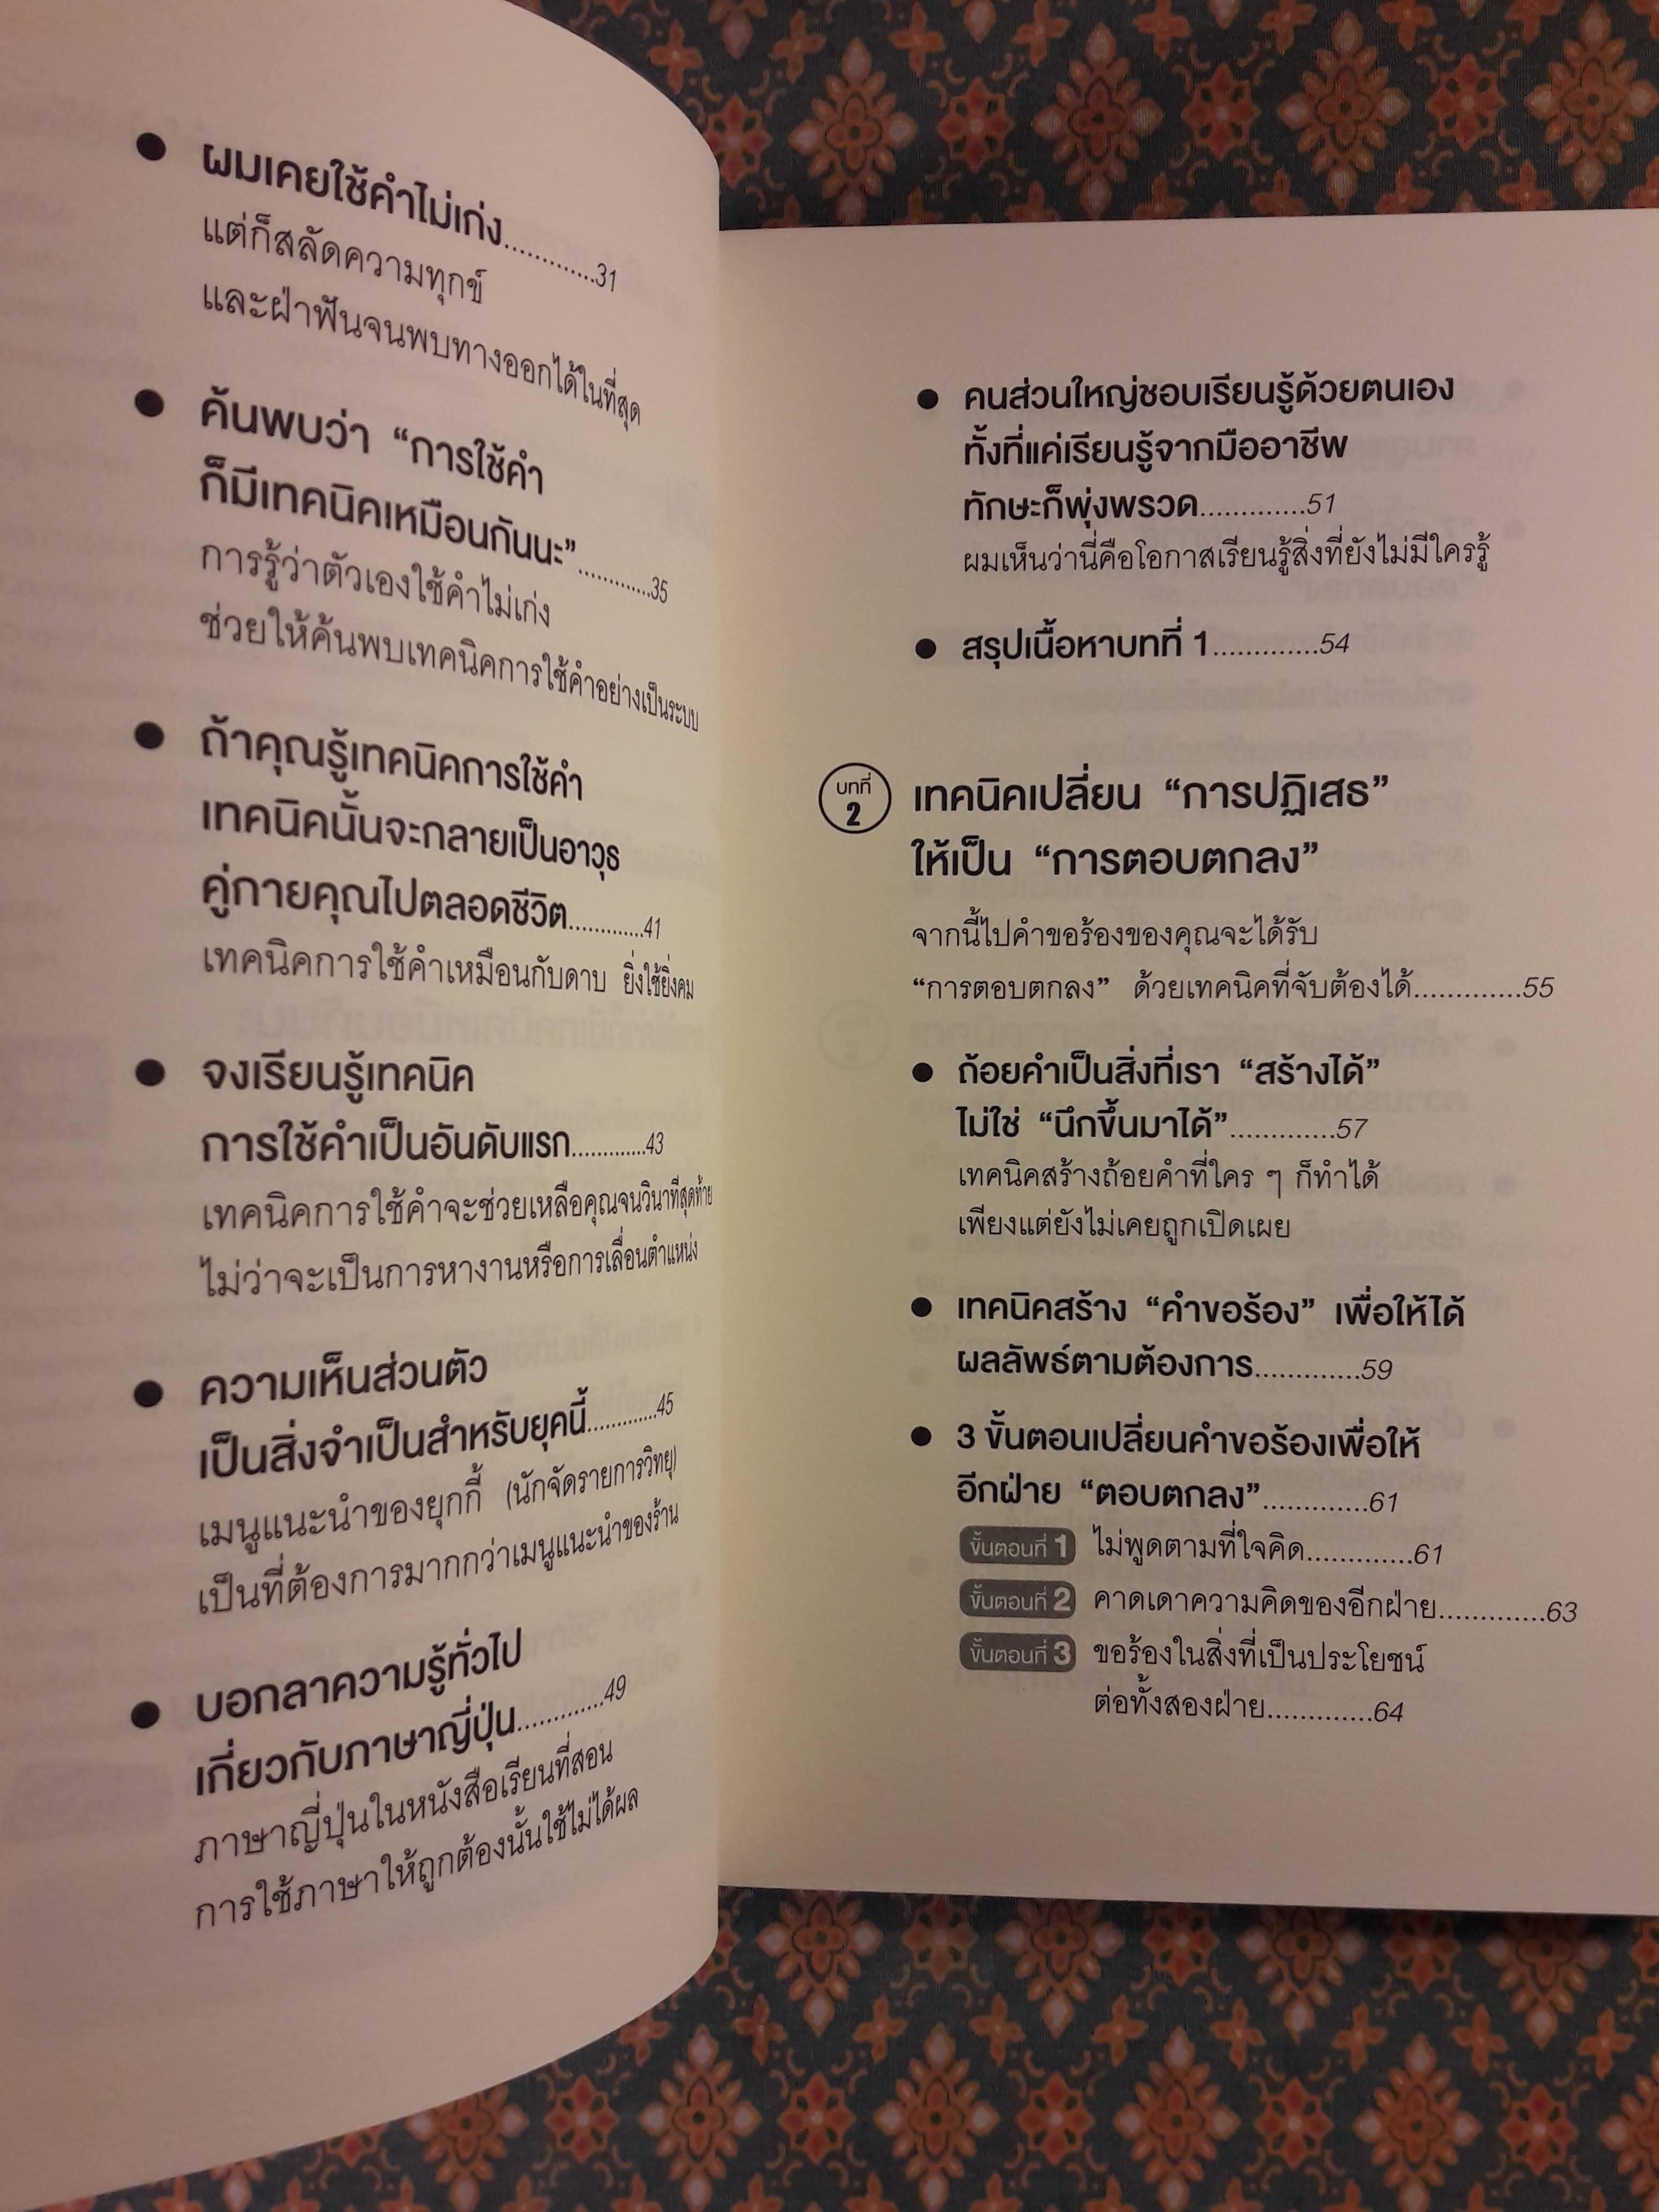 ● ผมเคยใช้คำไม่เก่ง.............31
แต่ก็สลัดความทุกข์
และฝ่าฟันจนพบทางออกได้ในที่สุด
● ค้นพบว่า “การใช้คำ
ก็มีเทคนิคเหมือนกันนะ”.............35
การรู้ว่าตัวเองใช้คำไม่เก่ง
ช่วยให้ค้นพบเทคนิคการใช้คำอย่างเป็นระบบ
● ถ้าคุณรู้เทคนิคการใช้คำ
เทคนิคนั้นจะกลายเป็นอาวุธ
คู่กายคุณไปตลอดชีวิต.............41
เทคนิคการใช้คำเหมือนกับดาบ ยิ่งใช้ยิ่งคม
● จงเรียนรู้เทคนิค
การใช้คำเป็นอันดับแรก.............43
เทคนิคการใช้คำจะช่วยเหลือคุณจนวินาทีสุดท้าย
ไม่ว่าจะเป็นการหางานหรือการเลื่อนตำแหน่ง
● ความเห็นส่วนตัว
เป็นสิ่งจำเป็นสำหรับยุคนี้.............45
เมนูแนะนำของยุกกี้ (นักจัดรายการวิทยุ)
เป็นที่ต้องการมากกว่าเมนูแนะนำของร้าน
● บอกลาความรู้ทั่วไป
เกี่ยวกับภาษาญี่ปุ่น.............49
ภาษาญี่ปุ่นในหนังสือเรียนที่สอน
การใช้ภาษาให้ถูกต้องนั้นใช้ไม่ได้ผล
● คนส่วนใหญ่ชอบเรียนรู้ด้วยตนเอง
ทั้งที่แค่เรียนรู้จากมืออาชีพ
ทักษะก็พุ่งพรวด.............51
ผมเห็นว่านี่คือโอกาสเรียนรู้สิ่งที่ยังไม่มีใครรู้
● สรุปเนื้อหาบทที่ 1.............54
บทที่ 2 เทคนิคเปลี่ยน “การปฏิเสธ”
ให้เป็น “การตอบตกลง”
จากนี้ไปคำขอร้องของคุณจะได้รับ
“การตอบตกลง” ด้วยเทคนิคที่จับต้องได้.............55
● ถ้อยคำเป็นสิ่งที่เรา “สร้างได้”
ไม่ใช่ “นึกขึ้นมาได้”.............57
เทคนิคสร้างถ้อยคำที่ใคร ๆ ก็ทำได้
เพียงแต่ยังไม่เคยถูกเปิดเผย
● เทคนิคสร้าง “คำขอร้อง” เพื่อให้ได้
ผลลัพธ์ตามต้องการ.............59
● 3 ขั้นตอนเปลี่ยนคำขอร้องเพื่อให้
อีกฝ่าย “ตอบตกลง”.............61
ขั้นตอนที่ 1 ไม่พูดตามที่ใจคิด.............61
ขั้นตอนที่ 2 คาดเดาความคิดของอีกฝ่าย.............63
ขั้นตอนที่ 3 ขอร้องในสิ่งที่เป็นประโยชน์
ต่อทั้งสองฝ่าย.............64